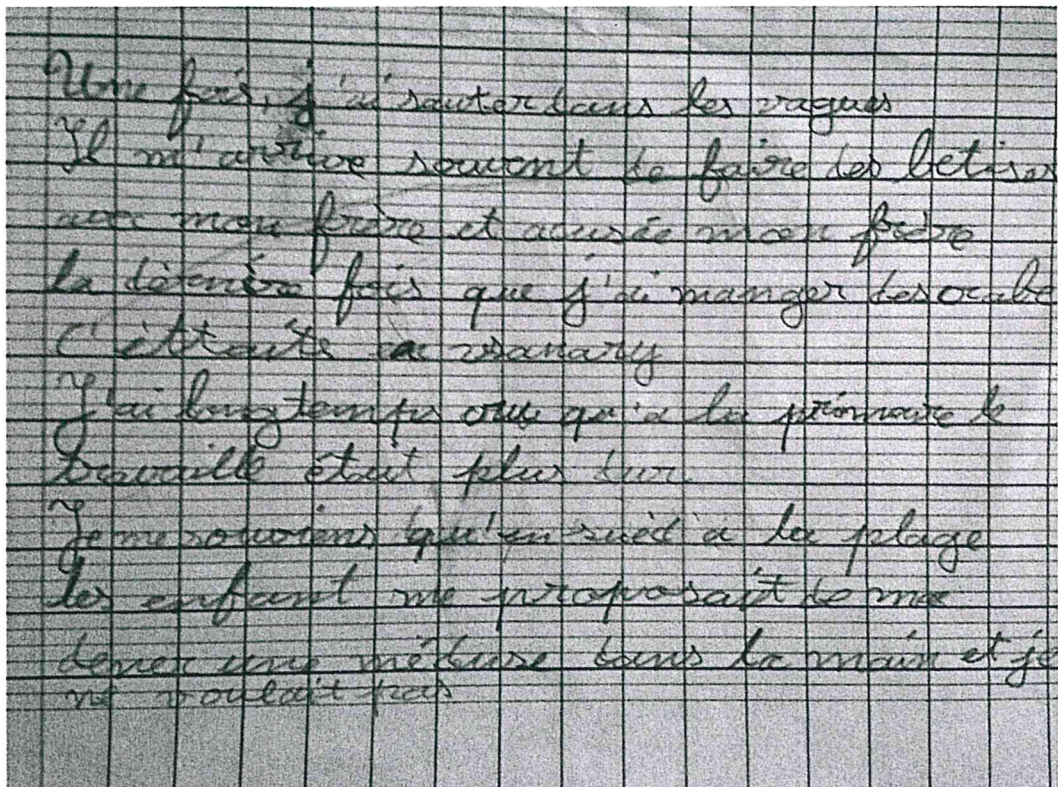 Une fois, j'ai sauter dans les vagues
Il m'arrive souvent de faire des betises
avec mon frère et accusée mon frère
la dernière fois que j'ai manger des crabe
c'éttaits a sanary
J'ai longtemps crus qu'a la primaire le
travaille était plus dur
Je me souviens qu'en suèd a la plage
les enfant me proposait de me
doner une méduse dans la main et je
ne voulait pas